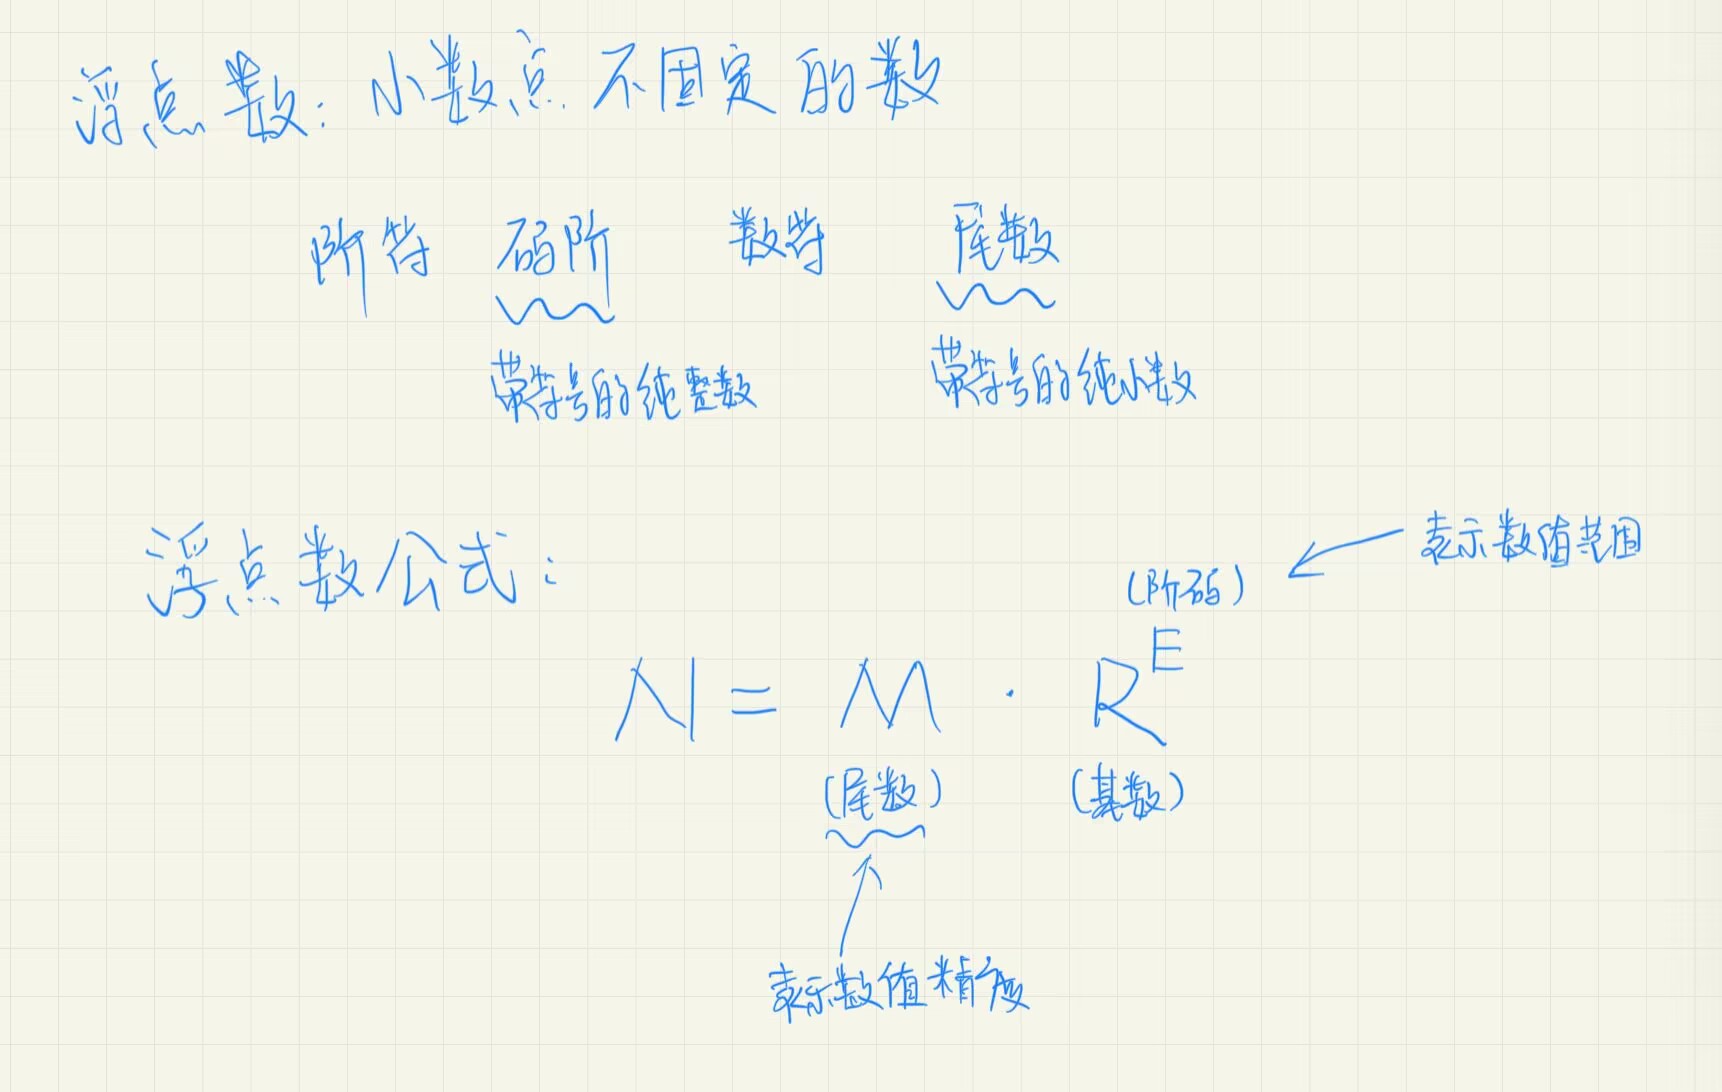 浮点数：小数点不固定的数
阶符 码阶 数符 尾数
带符号的纯整数 带符号的纯小数
浮点数公式：
表示数值范围
(阶码)
N = M · R^E
(尾数) (基数)
表示数值精度